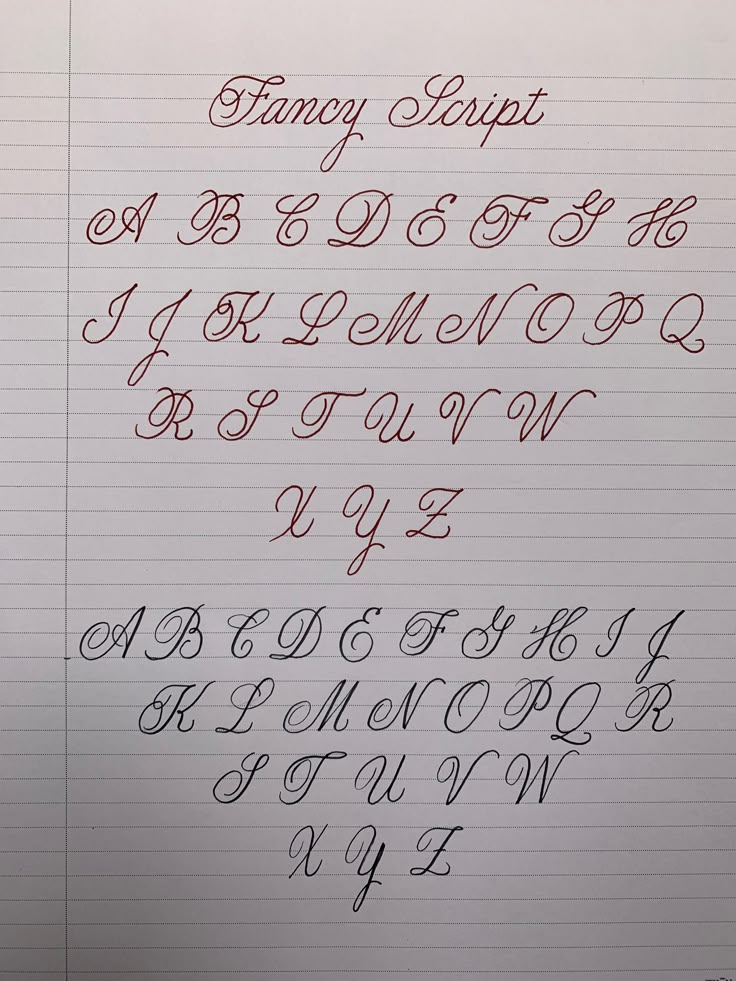 Fancy Script
A B C D E F G H
I J K L M N O P Q
R S T U V W
X Y Z
A B C D E F G H I J
K L M N O P Q R
S T U V W
X Y Z